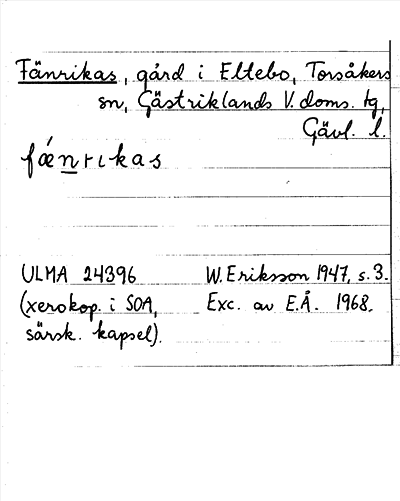 Fänrikas, gård i Eltebo, Torsåkers
sn, Gästriklands V. doms. tg,
Gävl. l.
fǽnrıkas
ULMA 24396
(xerokop. i SOA,
särsk. kapsel).
W. Eriksson 1947, s. 3.
Exc. av E.Å. 1968.